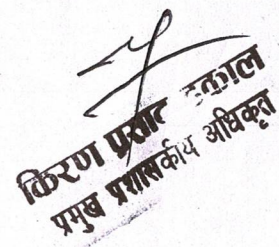 किरण प्रसाद
प्रमुख प्रशासकीय अधिकृत